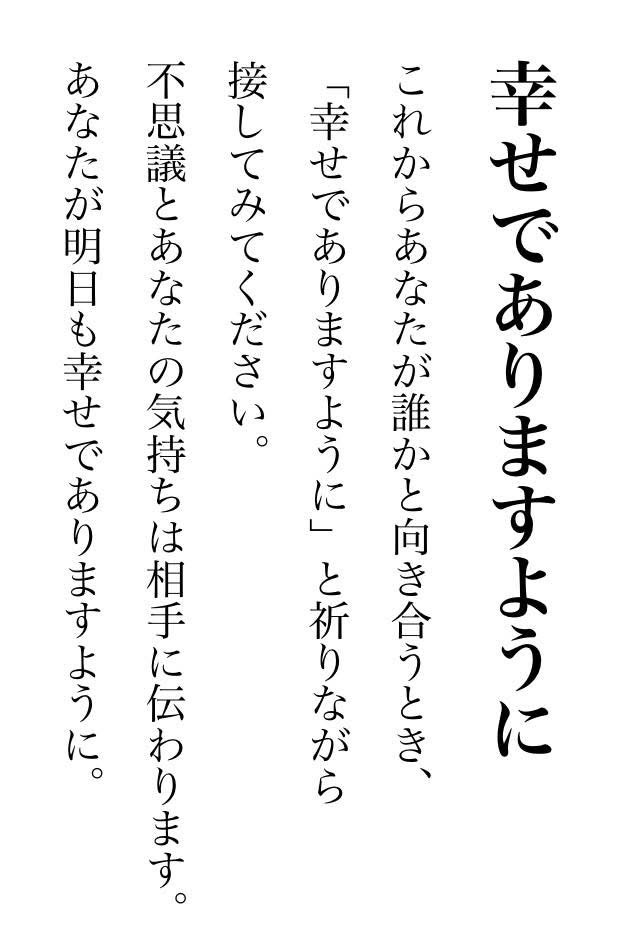 幸せでありますように
これからあなたが誰かと向き合うとき、
「幸せでありますように」と祈りながら
接してみてください。
不思議とあなたの気持ちは相手に伝わります。
あなたが明日も幸せでありますように。